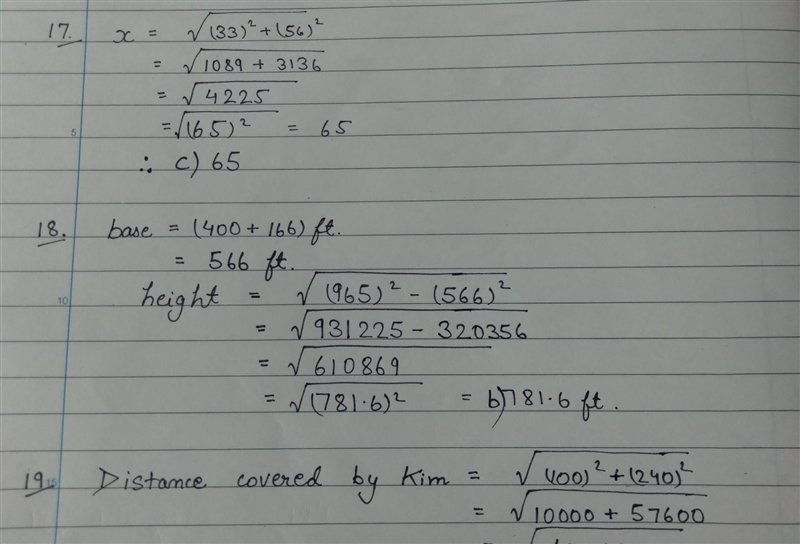 17. x = √(33)² + (56)²
= √1089 + 3136
= √4225
= √(65)² = 65
5
∴ c) 65
18. base = (400 + 166) ft.
= 566 ft.
10 height = √(965)² - (566)²
= √931225 - 320356
= √610869
= √(781.6)² = b) 781.6 ft.
19. 15 Distance covered by Kim = √(100)² + (240)²
= √10000 + 57600